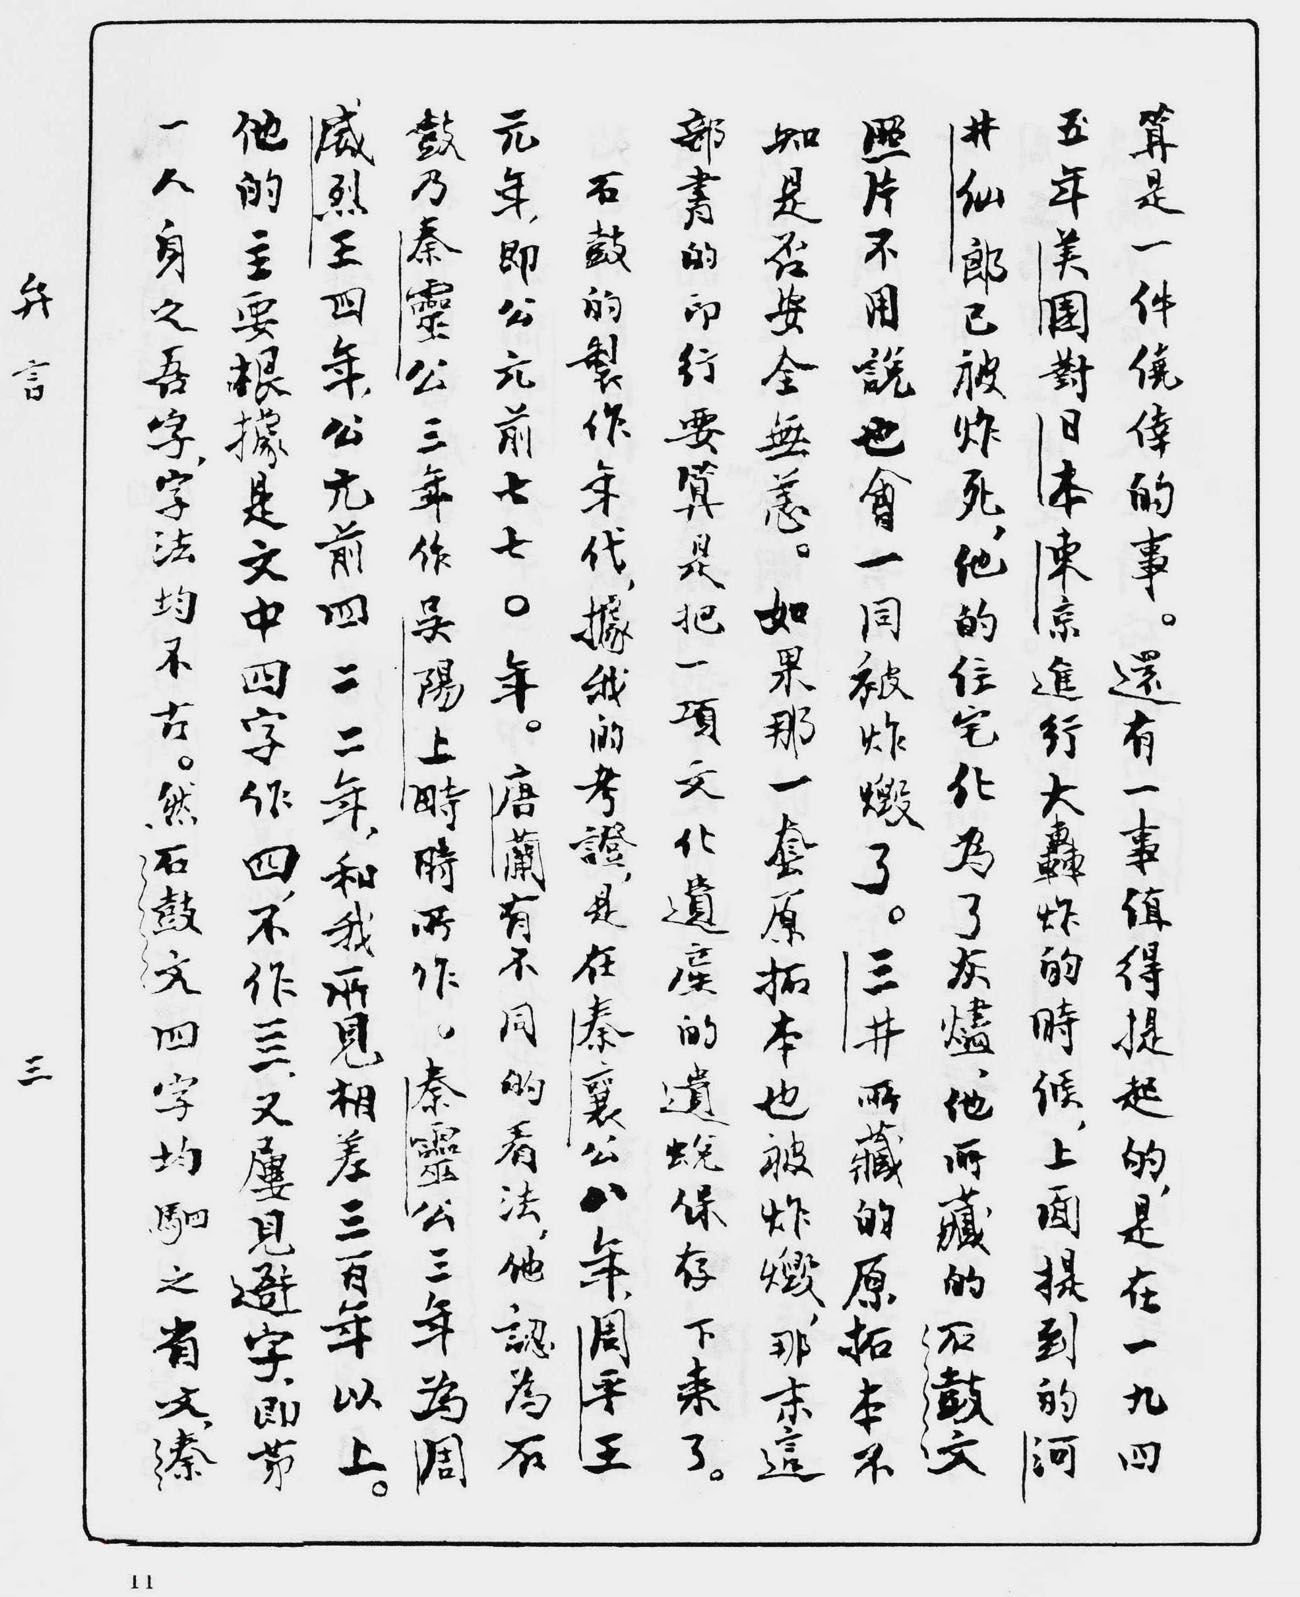 算是一件僥倖的事。還有一事值得提起的,是在一九四
五年美國對日本東京進行大轟炸的時候,上面提到的河
井仙郎已被炸死,他的住宅化為了灰燼,他所藏的石鼓文
照片不用說也會一同被炸燬了。三井所藏的原拓本不
知是否安全無恙。如果那一套原拓本也被炸燬,那末這
部書的印行要算是把一項文化遺產的遺蛻保存下來了。
石鼓的製作年代,據我的考證,是在秦襄公八年,周平王
元年,即公元前七七〇年。唐蘭有不同的看法,他認為石
鼓乃秦靈公三年作吳陽上時時所作。秦靈公三年為周
威烈王四年,公元前四二二年,和我所見相差三百年以上。
他的主要根據是文中四字作四,不作亖,又屢見避字,即第
一人身之吾字,字法均不古。然石鼓文四字均駟之省文,秦
弁言
三
11